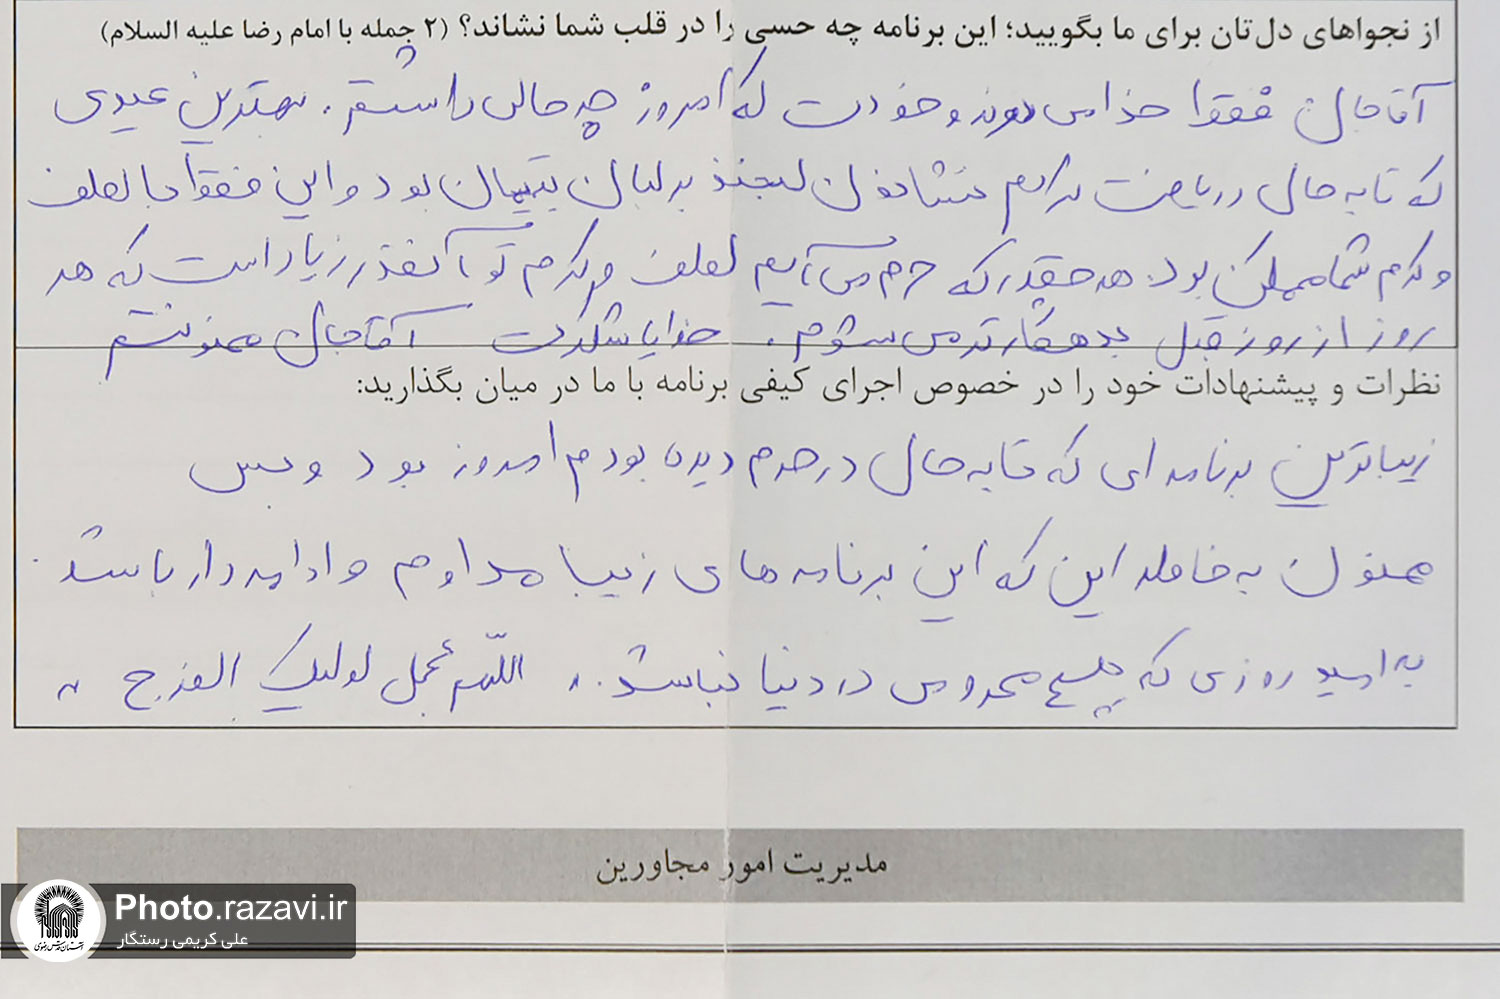 از نجواهای دل‌تان برای ما بگویید؛ این برنامه چه حسی را در قلب شما نشاند؟ (۲ جمله با امام رضا علیه السلام)
آقاجان فقط خدا می دوند و خودت که امروز چه حالی داشتم. بهترین عیدی
که تا به حال دریافت کردم نشاندن لبخند بر لبان یتیمان بود و این فقط با لطف
و کرم شما ممکن بود. هر چقدر که حرم می آیم لطف و کرم تو آنقدر زیاد است که هر
روز از روز قبل بدهکارتر می شوم. خدایا شکرت آقاجان ممنونتم
نظرات و پیشنهادات خود را در خصوص اجرای کیفی برنامه با ما در میان بگذارید:
زیباترین برنامه ای که تا به حال در حرم دیده بودم امروز بود و بس
ممنون به خاطر این که این برنامه های زیبا مداوم و ادامه دار باشد.
به امید روزی که هیچ محرومی در دنیا نباشد. اللهم عجل لولیک الفرج
مدیریت امور مجاورین
Photo.razavi.ir
علی کریمی رستگار
آستان قدس رضوی